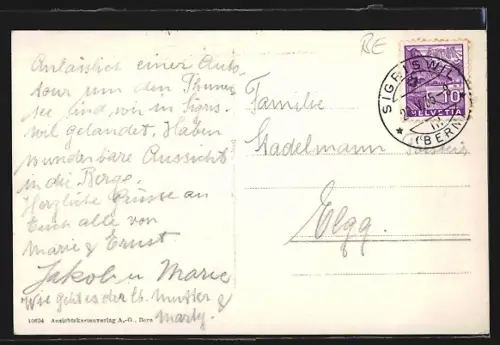 Anlässlich einer Auto-
tour um den Thuner
see sind wir in Sigris-
wil gelandet. Haben
wunderbare Aussicht
in die Berge.
Herzliche Grüsse an
Euch alle von
Marie & Ernst
Jakob u Marie
Wie geht es der lb. Mutter &
Marty.
10634 Ansichtskartenverlag A.-G., Bern
RE
SIGRISWIL
(BERN)
10
HELVETIA
Familie
Stadelmann
Elgg.